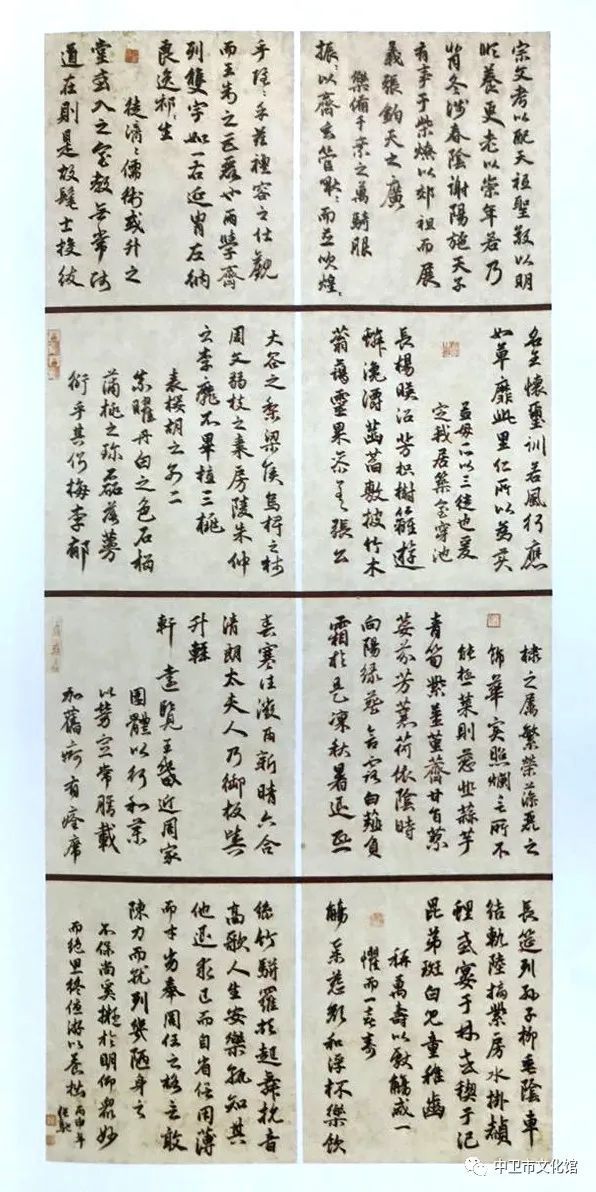 宗文考以配天祗聖敬以明
順養更老以崇年若乃
背冬涉春陰謝陽施天子
有事于柴燎以郊祖而展
義張鈞天之廣
樂備千乘之萬騎服
振々以齊玄管啾々而並吹煌々
乎隱々乎茲禮容之壯觀
而王制之巨麗也兩學齊
列雙宇如一右延冑左納
良逸祁々生
徒濟々儒術或升之
堂或入之室教無常師
道在則是故髦士投紱
名王懷璽訓若風行應
如草靡此里仁所以為美
孟母所以三徙也爰
定我居築室穿池
長楊映沼芳枳樹籬遊
鱗瀺灂菡萏敷披竹木
蓊藹靈果參差張公
大谷之梨梁侯烏椑之柿
周文弱枝之棗房陵朱仲
之李靡不畢植三桃
表櫻胡之別二
柰曜丹白之色石榴
蒲桃之珍磊落蔓
衍乎其側梅李郁
棣之屬繁榮藻麗之
飾華實照爛言所不
能極菜則葱韭蒜芋
青筍紫薑堇薺甘旨蓼
荽芬芳蘘荷依陰時
向陽綠葵含露白薤負
霜於是凜秋暑退熙
春寒往微雨新晴六合
清朗太夫人乃御板輿
升輕
軒遠覽王畿近周家
園體以行和藥
以勞宣常膳載
加舊痾有痊席
長筵列孫子柳垂陰車
結軌陸摘紫房水掛赬
鯉或宴于林或禊于汜
昆弟斑白兒童稚齒
稱萬壽以獻觴咸一
懼而一喜壽
觴舉慈顏和浮杯樂飲
絲竹駢羅於起舞抗音
高歌人生安樂孰知其
他退求己而自省信用薄
而才劣奉周任之格言敢
陳力而就列幾陋身之
不保尚奚擬於明仰眾妙
而絕思終優游以養拙
丙申年
中卫市文化馆